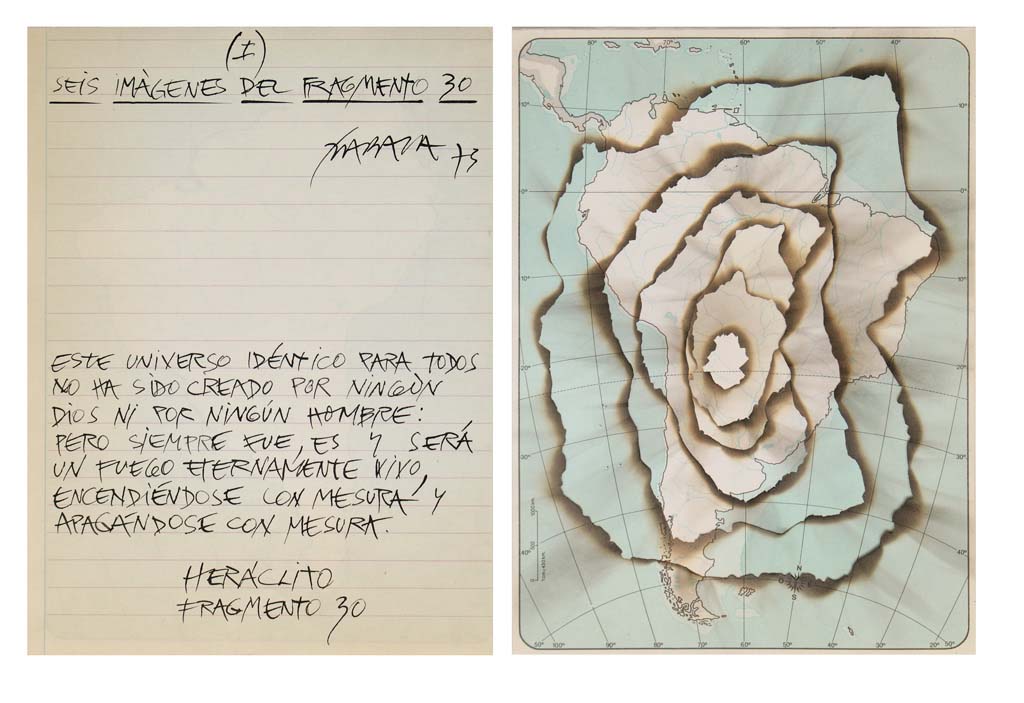 (I)
SEIS IMÀGENES DEL FRAGMENTO 30
ZABALA 73
ESTE UNIVERSO IDÉNTICO PARA TODOS
NO HA SIDO CREADO POR NINGÙN
DIOS NI POR NINGÚN HOMBRE:
PERO SIEMPRE FUE, ES Y SERÁ
UN FUEGO ETERNAMENTE VIVO,
ENCENDIÉNDOSE CON MESURA Y
APAGANDOSE CON MESURA.
HERÁCLITO
FRAGMENTO 30
80° 70° 60° 50° 40°
10° 10°
0° 0°
10° 10°
20° 20°
30° 30°
40° 40°
1000 km
500
0
N
O S
50° 100° 90° 80° 70° 60° 50° 40° 30° 20° 50°